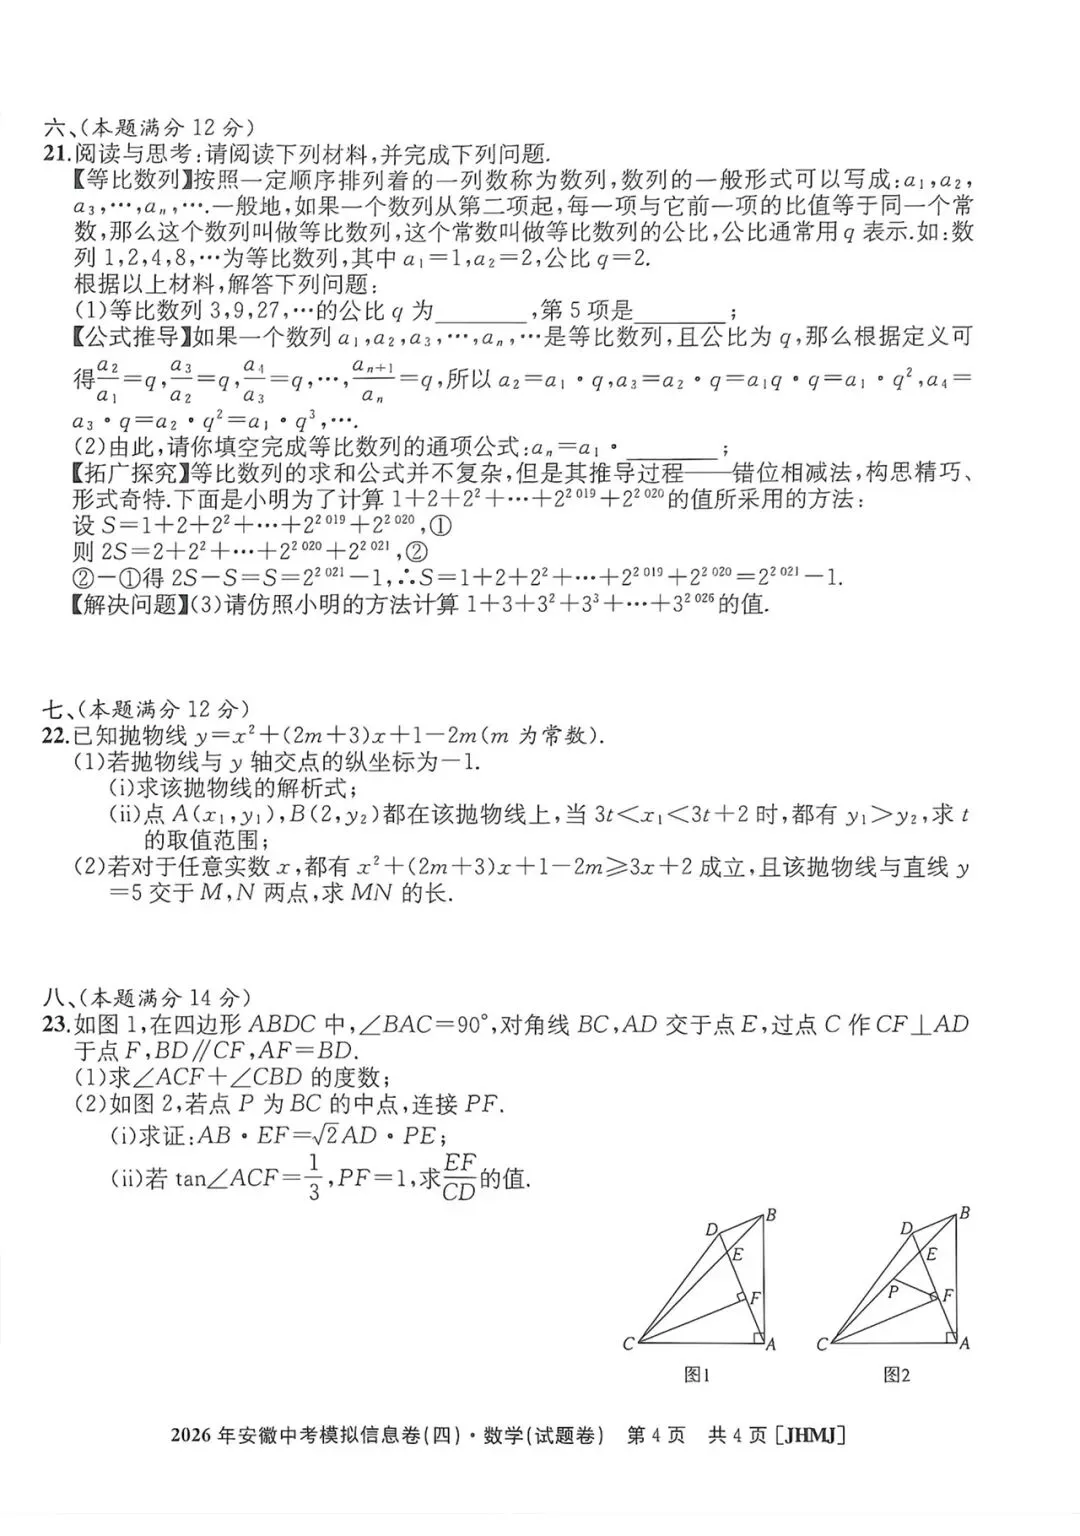 六、(本题满分 12 分)
21.阅读与思考:请阅读下列材料,并完成下列问题.
【等比数列】按照一定顺序排列着的一列数称为数列,数列的一般形式可以写成:a₁,a₂,
a₃,…,aₙ,….一般地,如果一个数列从第二项起,每一项与它前一项的比值等于同一个常
数,那么这个数列叫做等比数列,这个常数叫做等比数列的公比,公比通常用 q 表示.如:数
列 1,2,4,8,…为等比数列,其中 a₁=1,a₂=2,公比 q=2.
根据以上材料,解答下列问题:
(1)等比数列 3,9,27,…的公比 q 为________,第 5 项是________;
【公式推导】如果一个数列 a₁,a₂,a₃,…,aₙ,…是等比数列,且公比为 q,那么根据定义可
得a₂/a₁=q,a₃/a₂=q,a₄/a₃=q,…,aₙ₊₁/aₙ=q,所以 a₂=a₁·q,a₃=a₂·q=a₁q·q=a₁·q²,a₄=
a₃·q=a₂·q²=a₁·q³,….
(2)由此,请你填空完成等比数列的通项公式:aₙ=a₁·________;
【拓广探究】等比数列的求和公式并不复杂,但是其推导过程——错位相减法,构思精巧、
形式奇特.下面是小明为了计算 1+2+2²+…+2²⁰¹⁹+2²⁰²⁰的值所采用的方法:
设 S=1+2+2²+…+2²⁰¹⁹+2²⁰²⁰,①
则 2S=2+2²+…+2²⁰²⁰+2²⁰²¹,②
②-①得 2S-S=S=2²⁰²¹-1,∴S=1+2+2²+…+2²⁰¹⁹+2²⁰²⁰=2²⁰²¹-1.
【解决问题】(3)请仿照小明的方法计算 1+3+3²+3³+…+3²⁰²⁶的值.
七、(本题满分 12 分)
22.已知抛物线 y=x²+(2m+3)x+1-2m(m 为常数).
(1)若抛物线与 y 轴交点的纵坐标为-1.
(ⅰ)求该抛物线的解析式;
(ⅱ)点 A(x₁,y₁),B(2,y₂)都在该抛物线上,当 3t<x₁<3t+2 时,都有 y₁>y₂,求 t
的取值范围;
(2)若对于任意实数 x,都有 x²+(2m+3)x+1-2m≥3x+2 成立,且该抛物线与直线 y
=5 交于 M,N 两点,求 MN 的长.
八、(本题满分 14 分)
23.如图 1,在四边形 ABDC 中,∠BAC=90°,对角线 BC,AD 交于点 E,过点 C 作 CF⊥AD
于点 F,BD∥CF,AF=BD.
(1)求∠ACF+∠CBD 的度数;
(2)如图 2,若点 P 为 BC 的中点,连接 PF.
(ⅰ)求证:AB·EF=√2AD·PE;
(ⅱ)若 tan∠ACF=1/3,PF=1,求EF/CD的值.
D B E F C A
图1
D B E P F C A
图2
2026 年安徽中考模拟信息卷(四)·数学(试题卷) 第 4 页 共 4 页 [JHMJ]